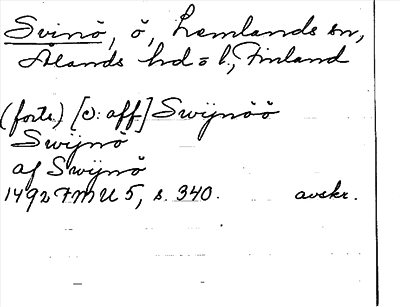 Svinö, ö, Lemlands sn,
Ålands hd o l, Finland
(forts.) [o: aff] Swijnöö
Swijnö
af Swijnö
1492 FMU 5, s. 340. avskr.